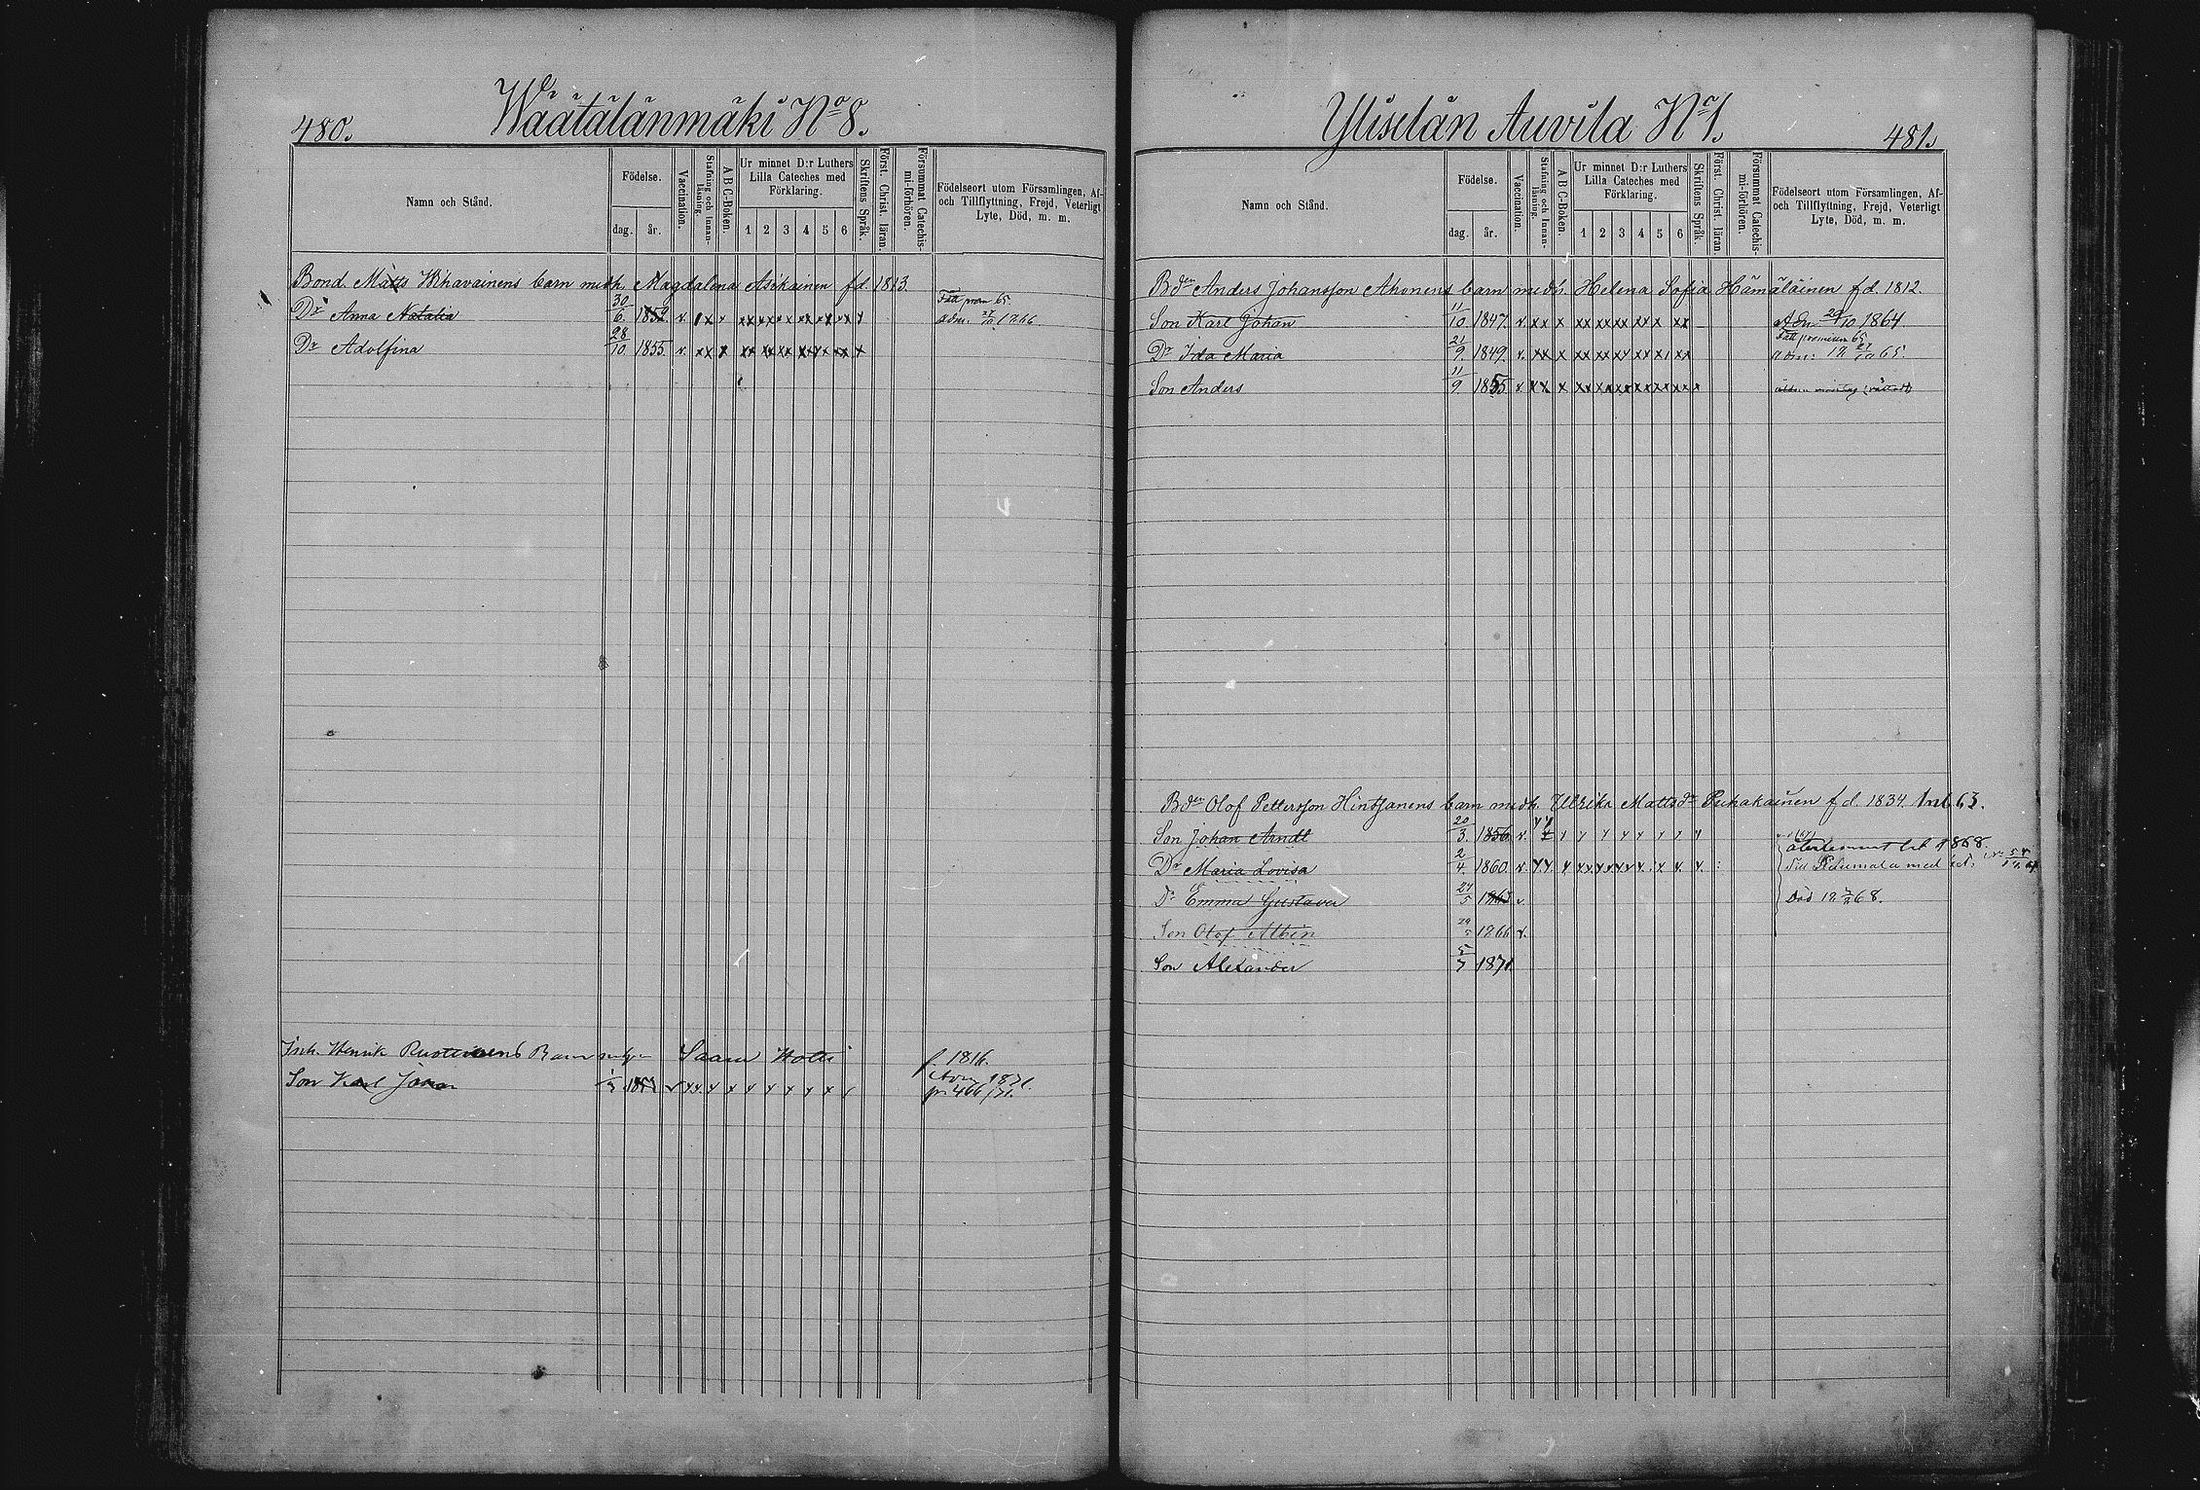 480.
Wäätälänmäki No 8.
Namn och Stånd.
Födelse.
dag.
år.
Vaccination.
Stafning och Innanläsning.
A B C-Boken.
Ur minnet D:r Luthers
Lilla Cateches med
Förklaring.
1 2 3 4 5 6
Skriftens Språk.
Först. Christ. läran.
Försummat Catechismi-förhören.
Födelseort utom Församlingen, Af-
och Tillflyttning, Frejd, Veterligt
Lyte, Död, m. m.
Bond. Matts Wihavainens barn med h. Magdalena Asikainen f.d. 1813.
Dr Anna Natalia 30/6. 1852. v. x x x xx xx x x x x x x adm. 1866
Dr Adolfina 28/10. 1855. v. xx x xx xx xx xx x x x
Inh. Henrik Barn Saara f. 1816.
Son Karl Johan v x x x x x x x x x 1871.
pr. 466/71.
Yliselän Auvila No 1.
481.
Namn och Stånd.
Födelse.
dag.
år.
Vaccination.
Stafning och Innanläsning.
A B C-Boken.
Ur minnet D:r Luthers
Lilla Cateches med
Förklaring.
1 2 3 4 5 6
Skriftens Språk.
Först. Christ. läran.
Försummat Catechismi-förhören.
Födelseort utom Församlingen, Af-
och Tillflyttning, Frejd, Veterligt
Lyte, Död, m. m.
Bdn Anders Johansson Ahonens barn med h. Helena Sofia Hämäläinen f.d. 1812.
Son Karl Johan 11/10. 1847. v. xx x xx xx xx xx x xx Adm 1864.
Dr Ida Maria 21/9. 1849. v. xx x xx xx xx xx x xx Fått premium 65
adm: 18 27/10 65
Son Anders 11/9. 1855 v xx x xx xx xx xx xx x x
Bdn Olof Pettersson Hintsanens barn med h. Ulrika Mattsdr Puhakainen f.d. 1834. Inl. 63.
Son Johan Arndt 20/3. 1856. v. x x x x x x x x x 1868.
Dr Maria Lovisa 2/4. 1860. v. xx x xx xx xx x x x x till med
Dr Emma Gustava 24/5 1863 v. Död 68.
Son Olof Albin 1866 v.
Son Alexander 5/7 1871